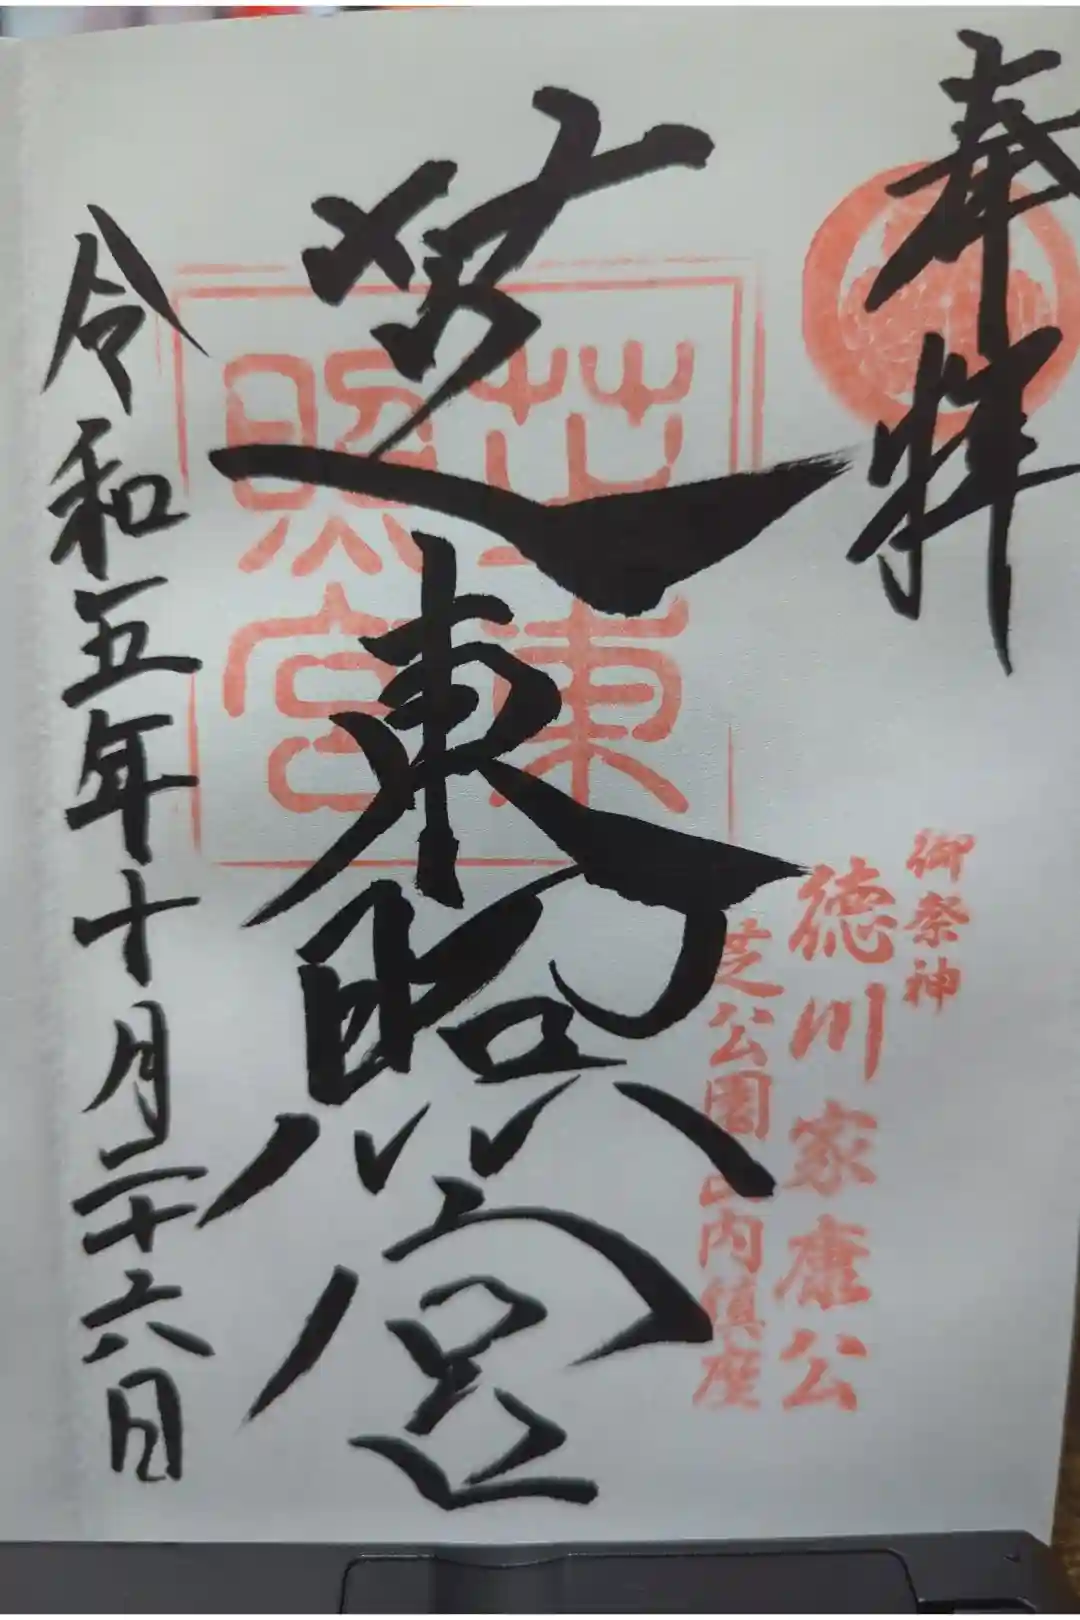 奉拝
御祭神
徳川家康公
芝公園 内鎮座
芝東照宮
芝東
照宮
令和五年十月二十六日